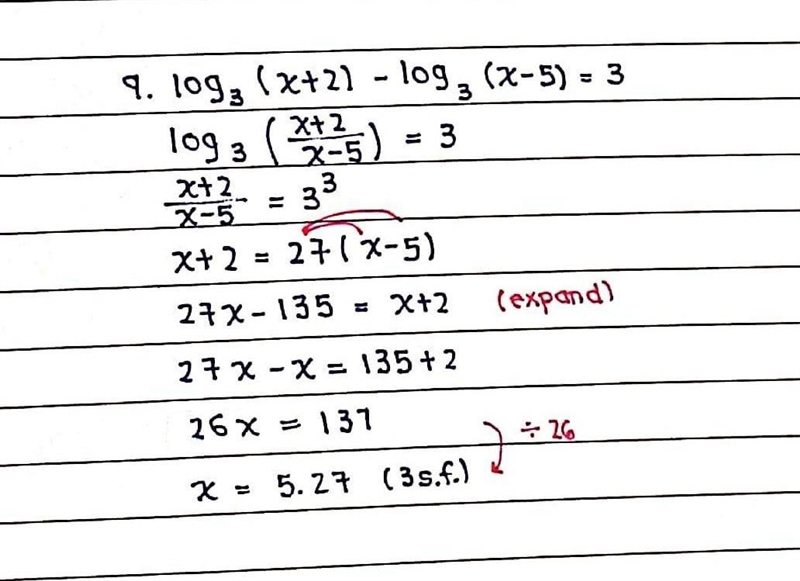 9. log₃ (x+2) - log₃ (x-5) = 3
log₃ (x+2/x-5) = 3
x+2/x-5 = 3³
x+2 = 27(x-5)
27x - 135 = x+2 (expand)
27x - x = 135+2
26x = 137 ÷ 26
x = 5.27 (3s.f.)